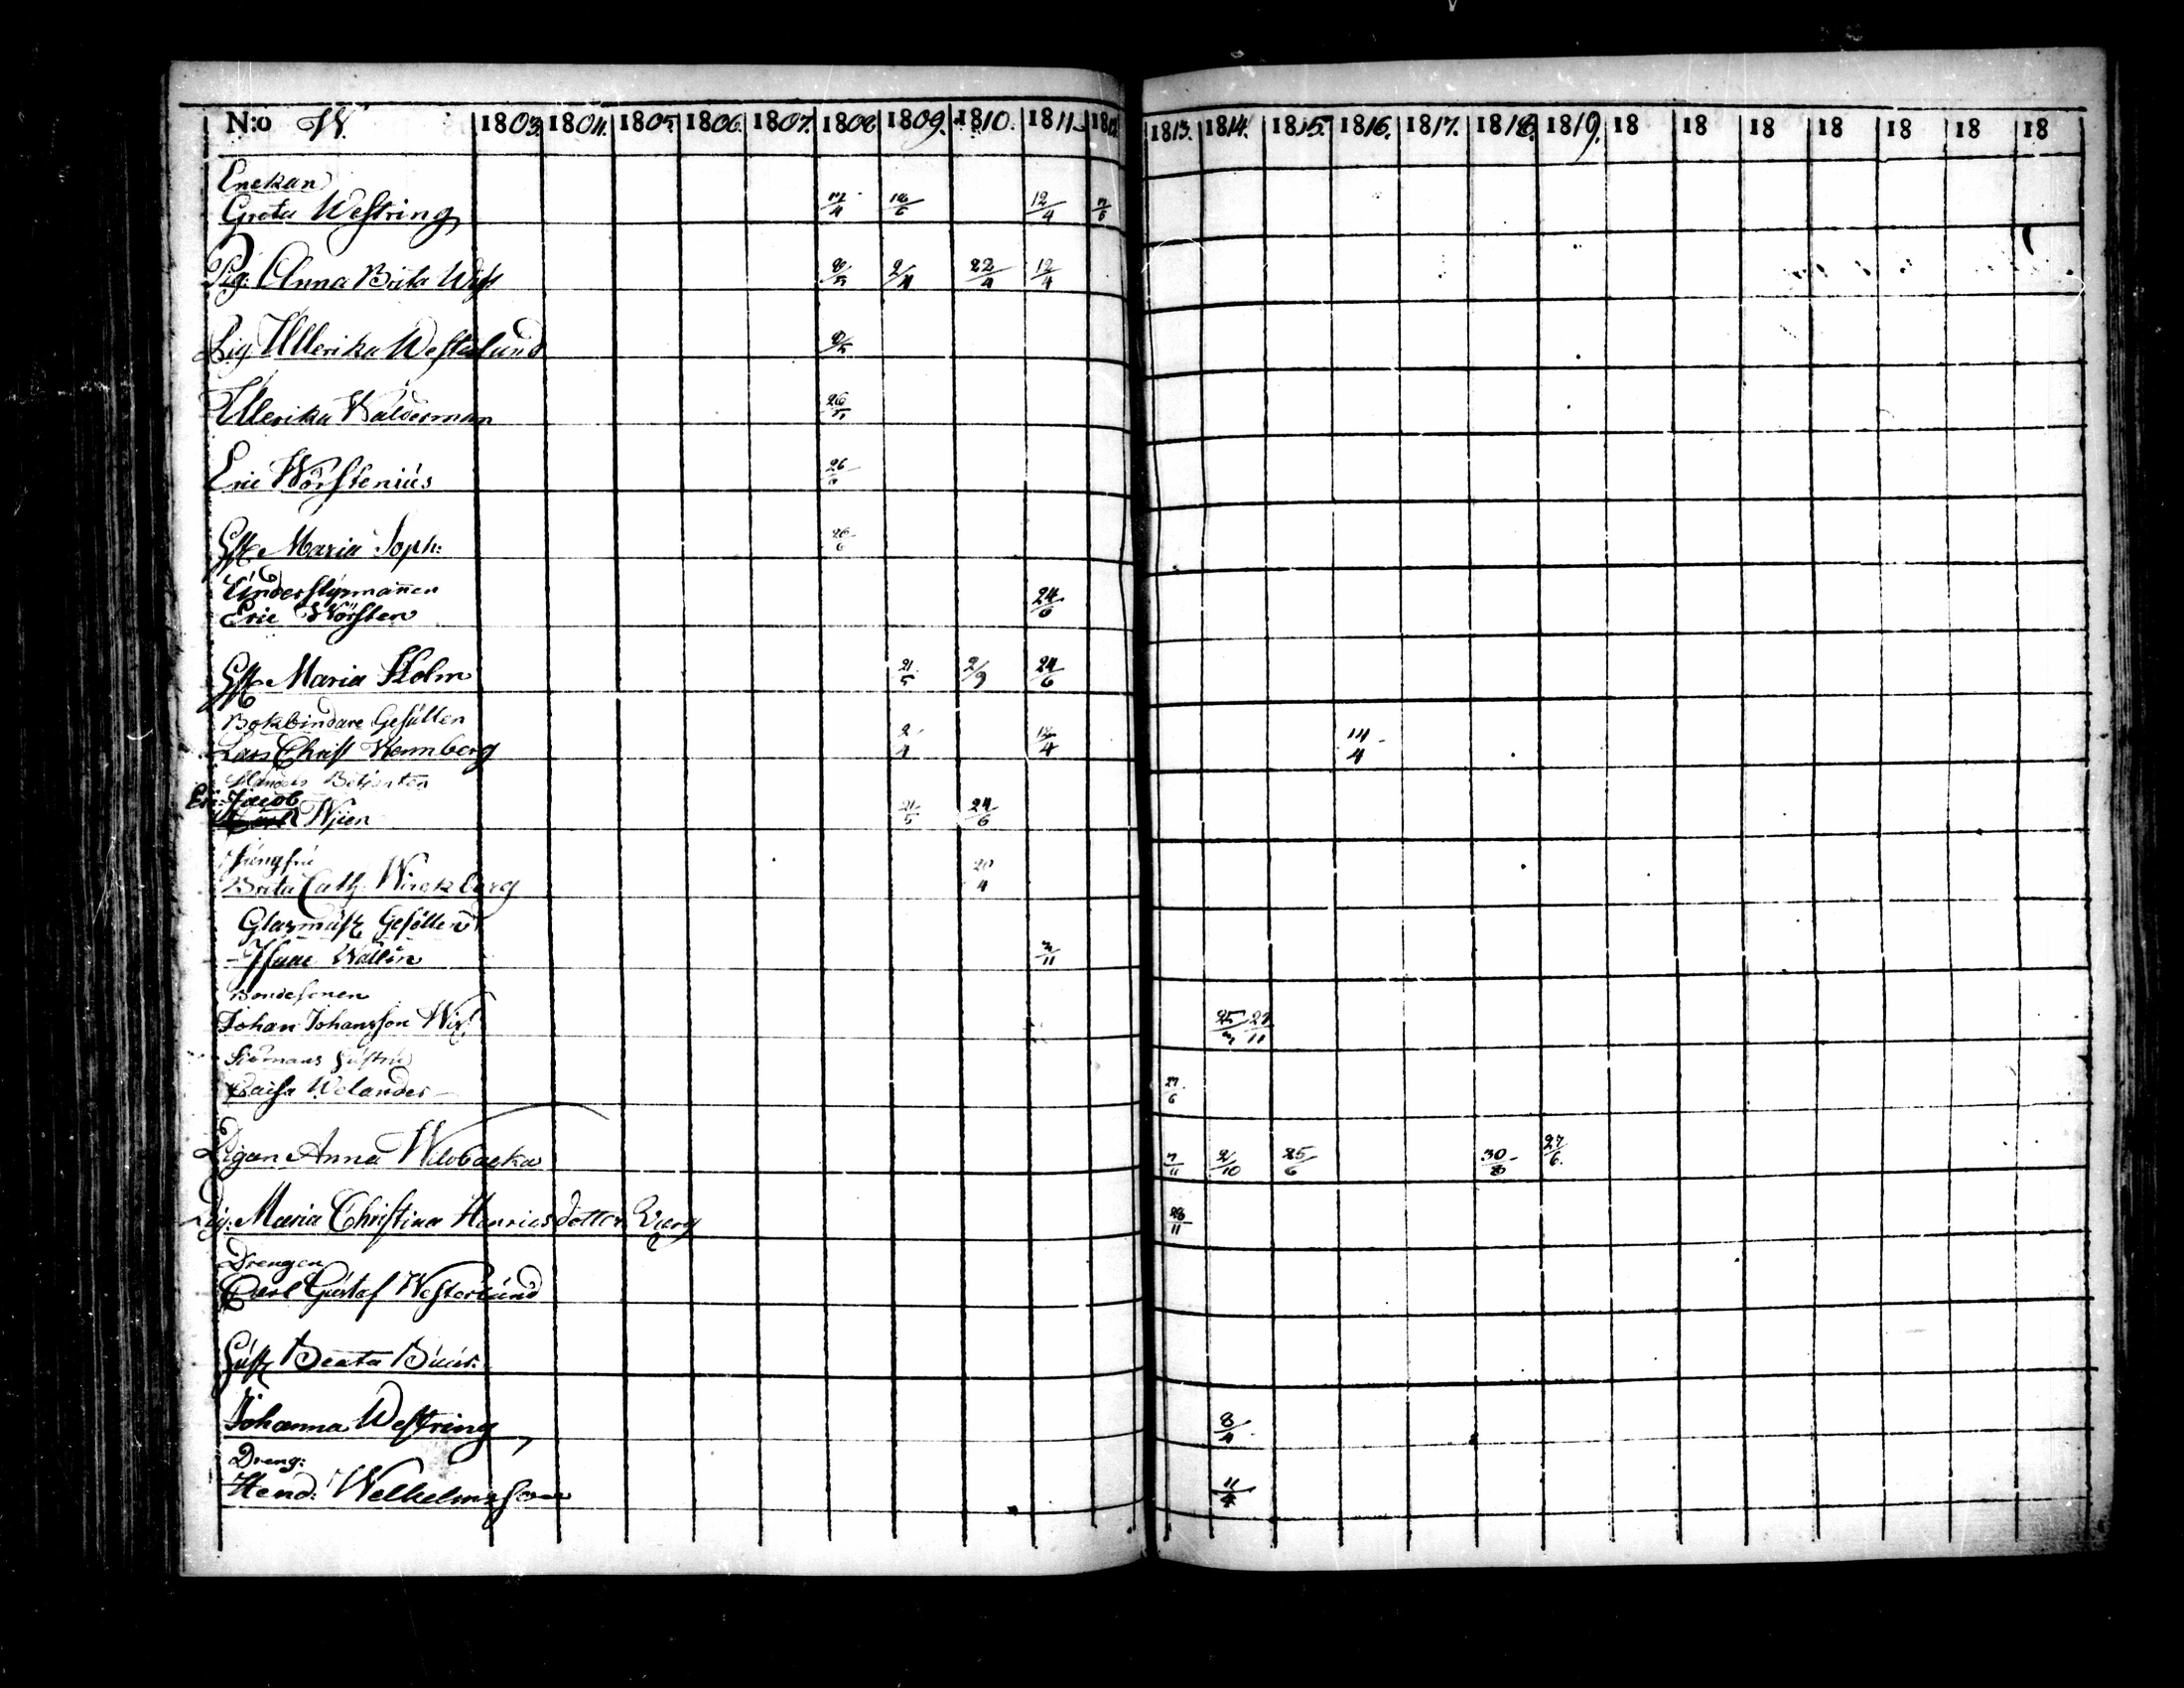 N:o W. 1803. 1804. 1805. 1806. 1807. 1808 1809. 1810. 1811. 1812. 1813. 1814. 1815. 1816. 1817. 1818. 1819. 18 18 18 18 18 18 18
Enckan
Greta Westring 17/4 18/6 12/4 7/6
Pig: Anna Brita 2/4 22/4 12/4
Pig Ullerika Westerlund
Ullerika Walderman
Eric Wörstenius 26/6
Maria Soph: 26/6
Understyrmañen
Eric Wörsten 24/6
Maria Holm 21/5 2/9 24/6
Bokbindare Gesällen
Lars Christ Wennberg 2/4 12/4 14/4
Betjenten
Jacob
Wijen 21/5 24/6
Jungfru
Brita Cath: Wirckberg 20/4
Glasmäst Gesällen
Isaac Wallin 3/11
Bondesonen
Johan Johansson 25/3 27/11
Siömans Hustru
Caisa Welander 27/6
Pigan Anna Wilobacka 7/11 2/10 25/6 30/8 27/6.
Pig: Maria Christina Henricsdotter 28/11
Drengen
Carl Gustaf Westerlund
Beata
Johanna Westring 8/4
Dreng:
Hend: Welhelmsson 11/4